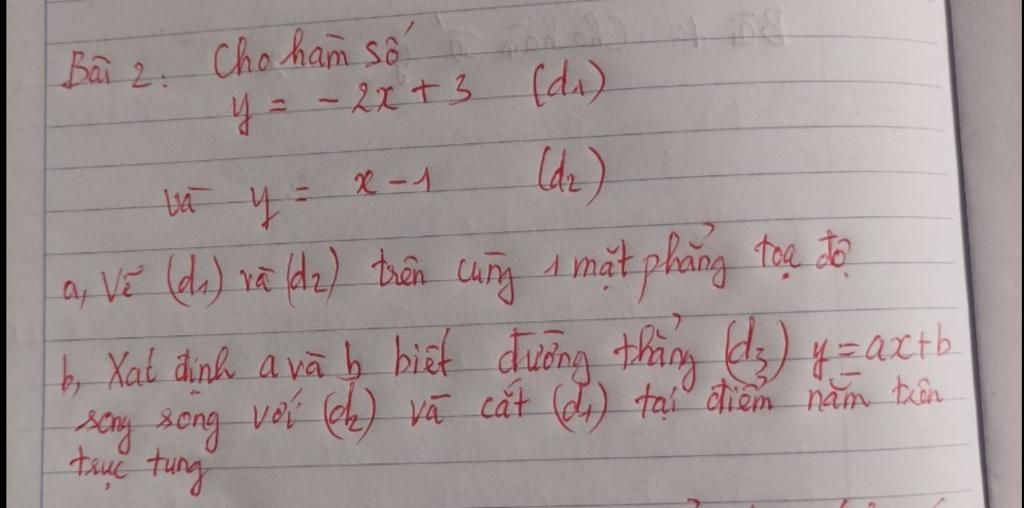 Bài 2: Cho hàm số
y = - 2x + 3 (d1)
và y = x - 1 (d2)
a, Vẽ (d1) và (d2) trên cùng 1 mặt phẳng toạ độ
b, Xác định a và b biết đường thẳng (d3) y = ax + b
song song với (d2) và cắt (d1) tại điểm nằm trên
trục tung